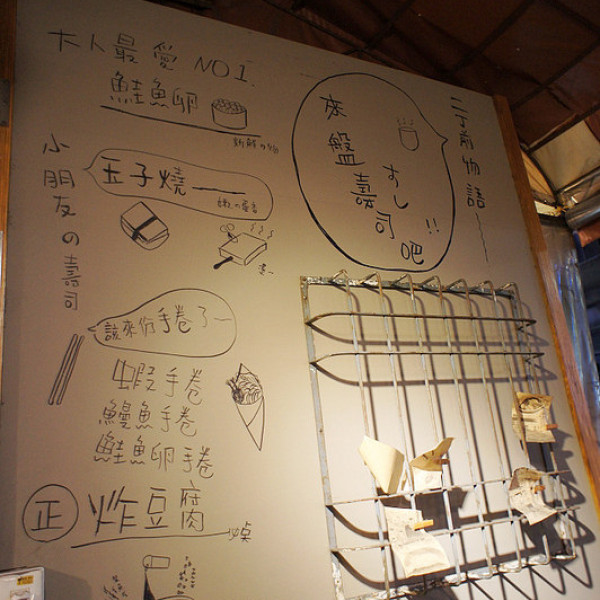 大人最愛 NO1.
鮭魚卵
新鮮の
小朋友の壽司
玉子燒
該來份手卷了
蝦手卷
鰻魚手卷
鮭魚卵手卷
正 炸豆腐
二丁前物語
來盤壽司吧
すし
!!